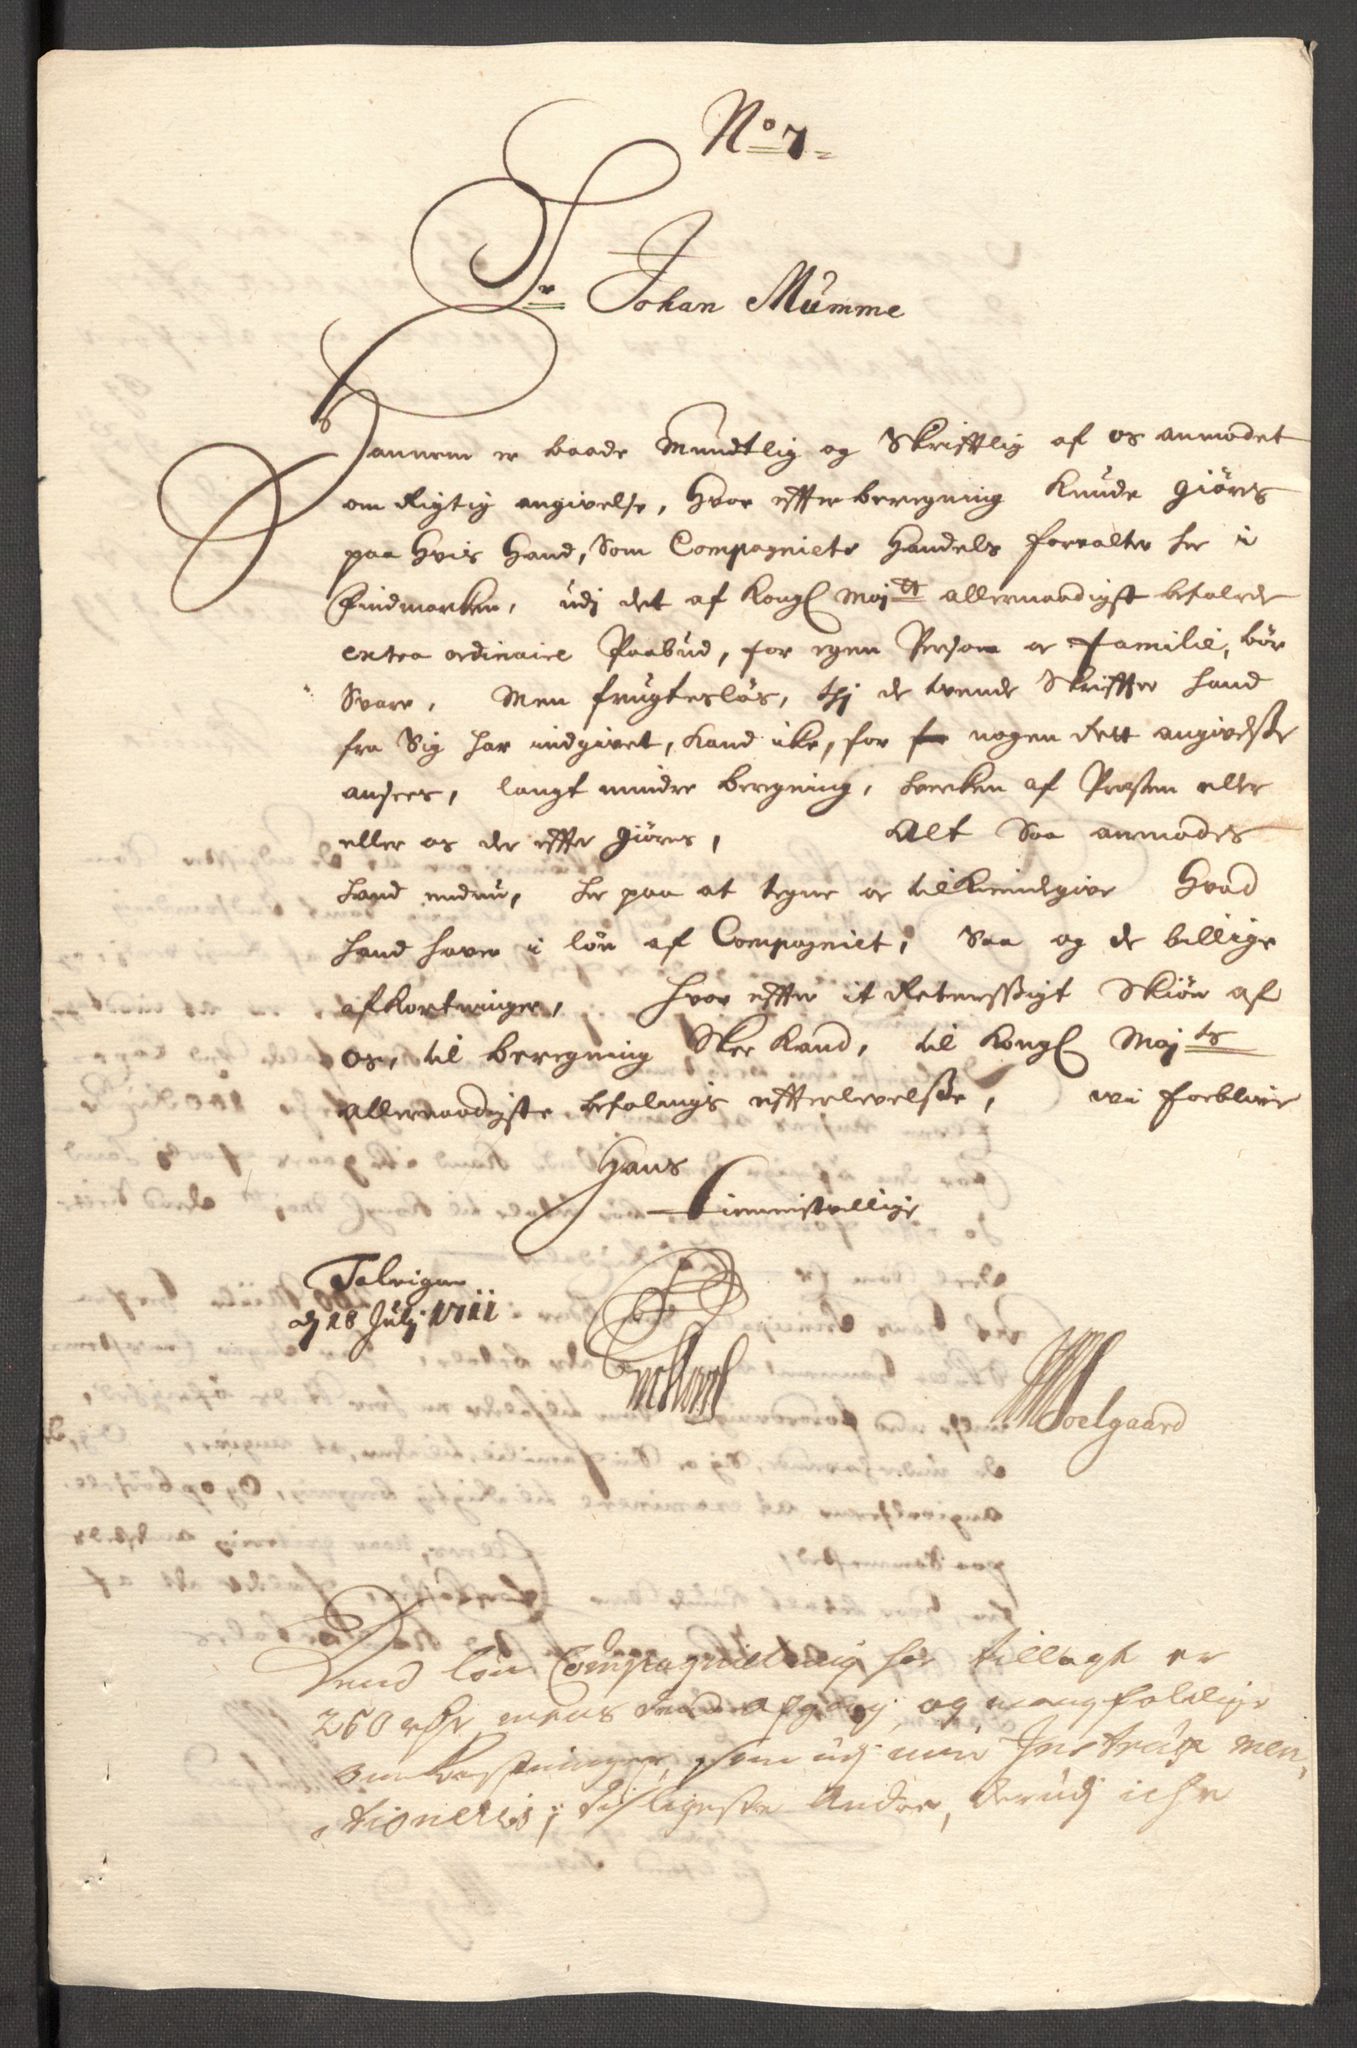 No 7
Sr Johan Mumme
er baade Mundtlig og Skrifftlig af os anmodet
om Rigtig angivelse, Hvor effter beregning Kunde giøres
paa Hvis Hand, Som Compagniets Handels forvalter her i
Findmarken, udj det af Kongl Maytt allernaadigst befalede
extra ordinaire Paabud, for egen Persohn oc familie, bør
Svare, Men frugtesløs, thj de tvende Skriffter hand
fra Sig har indgivet, kand icke, for nogen Rett angivelsse
ansees, langt mindre beregning, hvercken af Præsten eller
eller os der effter giøres, Alt Saa anmodes
hand endnu, her paa at tegne oc tilkiendegive Hvad
hand haver i løn af Compagniet, Saa og de billige
afkortninger, Hvor effter it Retmessigt Skiøn af
os, til beregning Skee Kand, til Kongl Mayts
allernaadigste befalings effterlevelsse, vi forblive
Hans
Tienistvillige
Talvigen
d 18 Julj 1711
Soelgaard
Dend løn Compagniet mig har tillagt er
260 rdr, mens dend afgang og mangfoldige
omkostninger, som udj min Instrux men,
tioneris, disligeste Andre, derudj icke